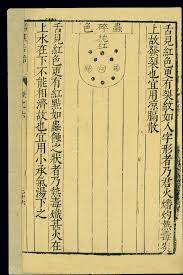 舌見紅色更有裂紋如人字形者乃君火燔灼熱毒炎
上故發裂也宜用涼膈散
蟲碎色
純紅
舌見紅色更有紅點如蟲蝕之狀者乃熱毒熾甚火在
上水在下不能相濟故也宜用小承氣湯下之